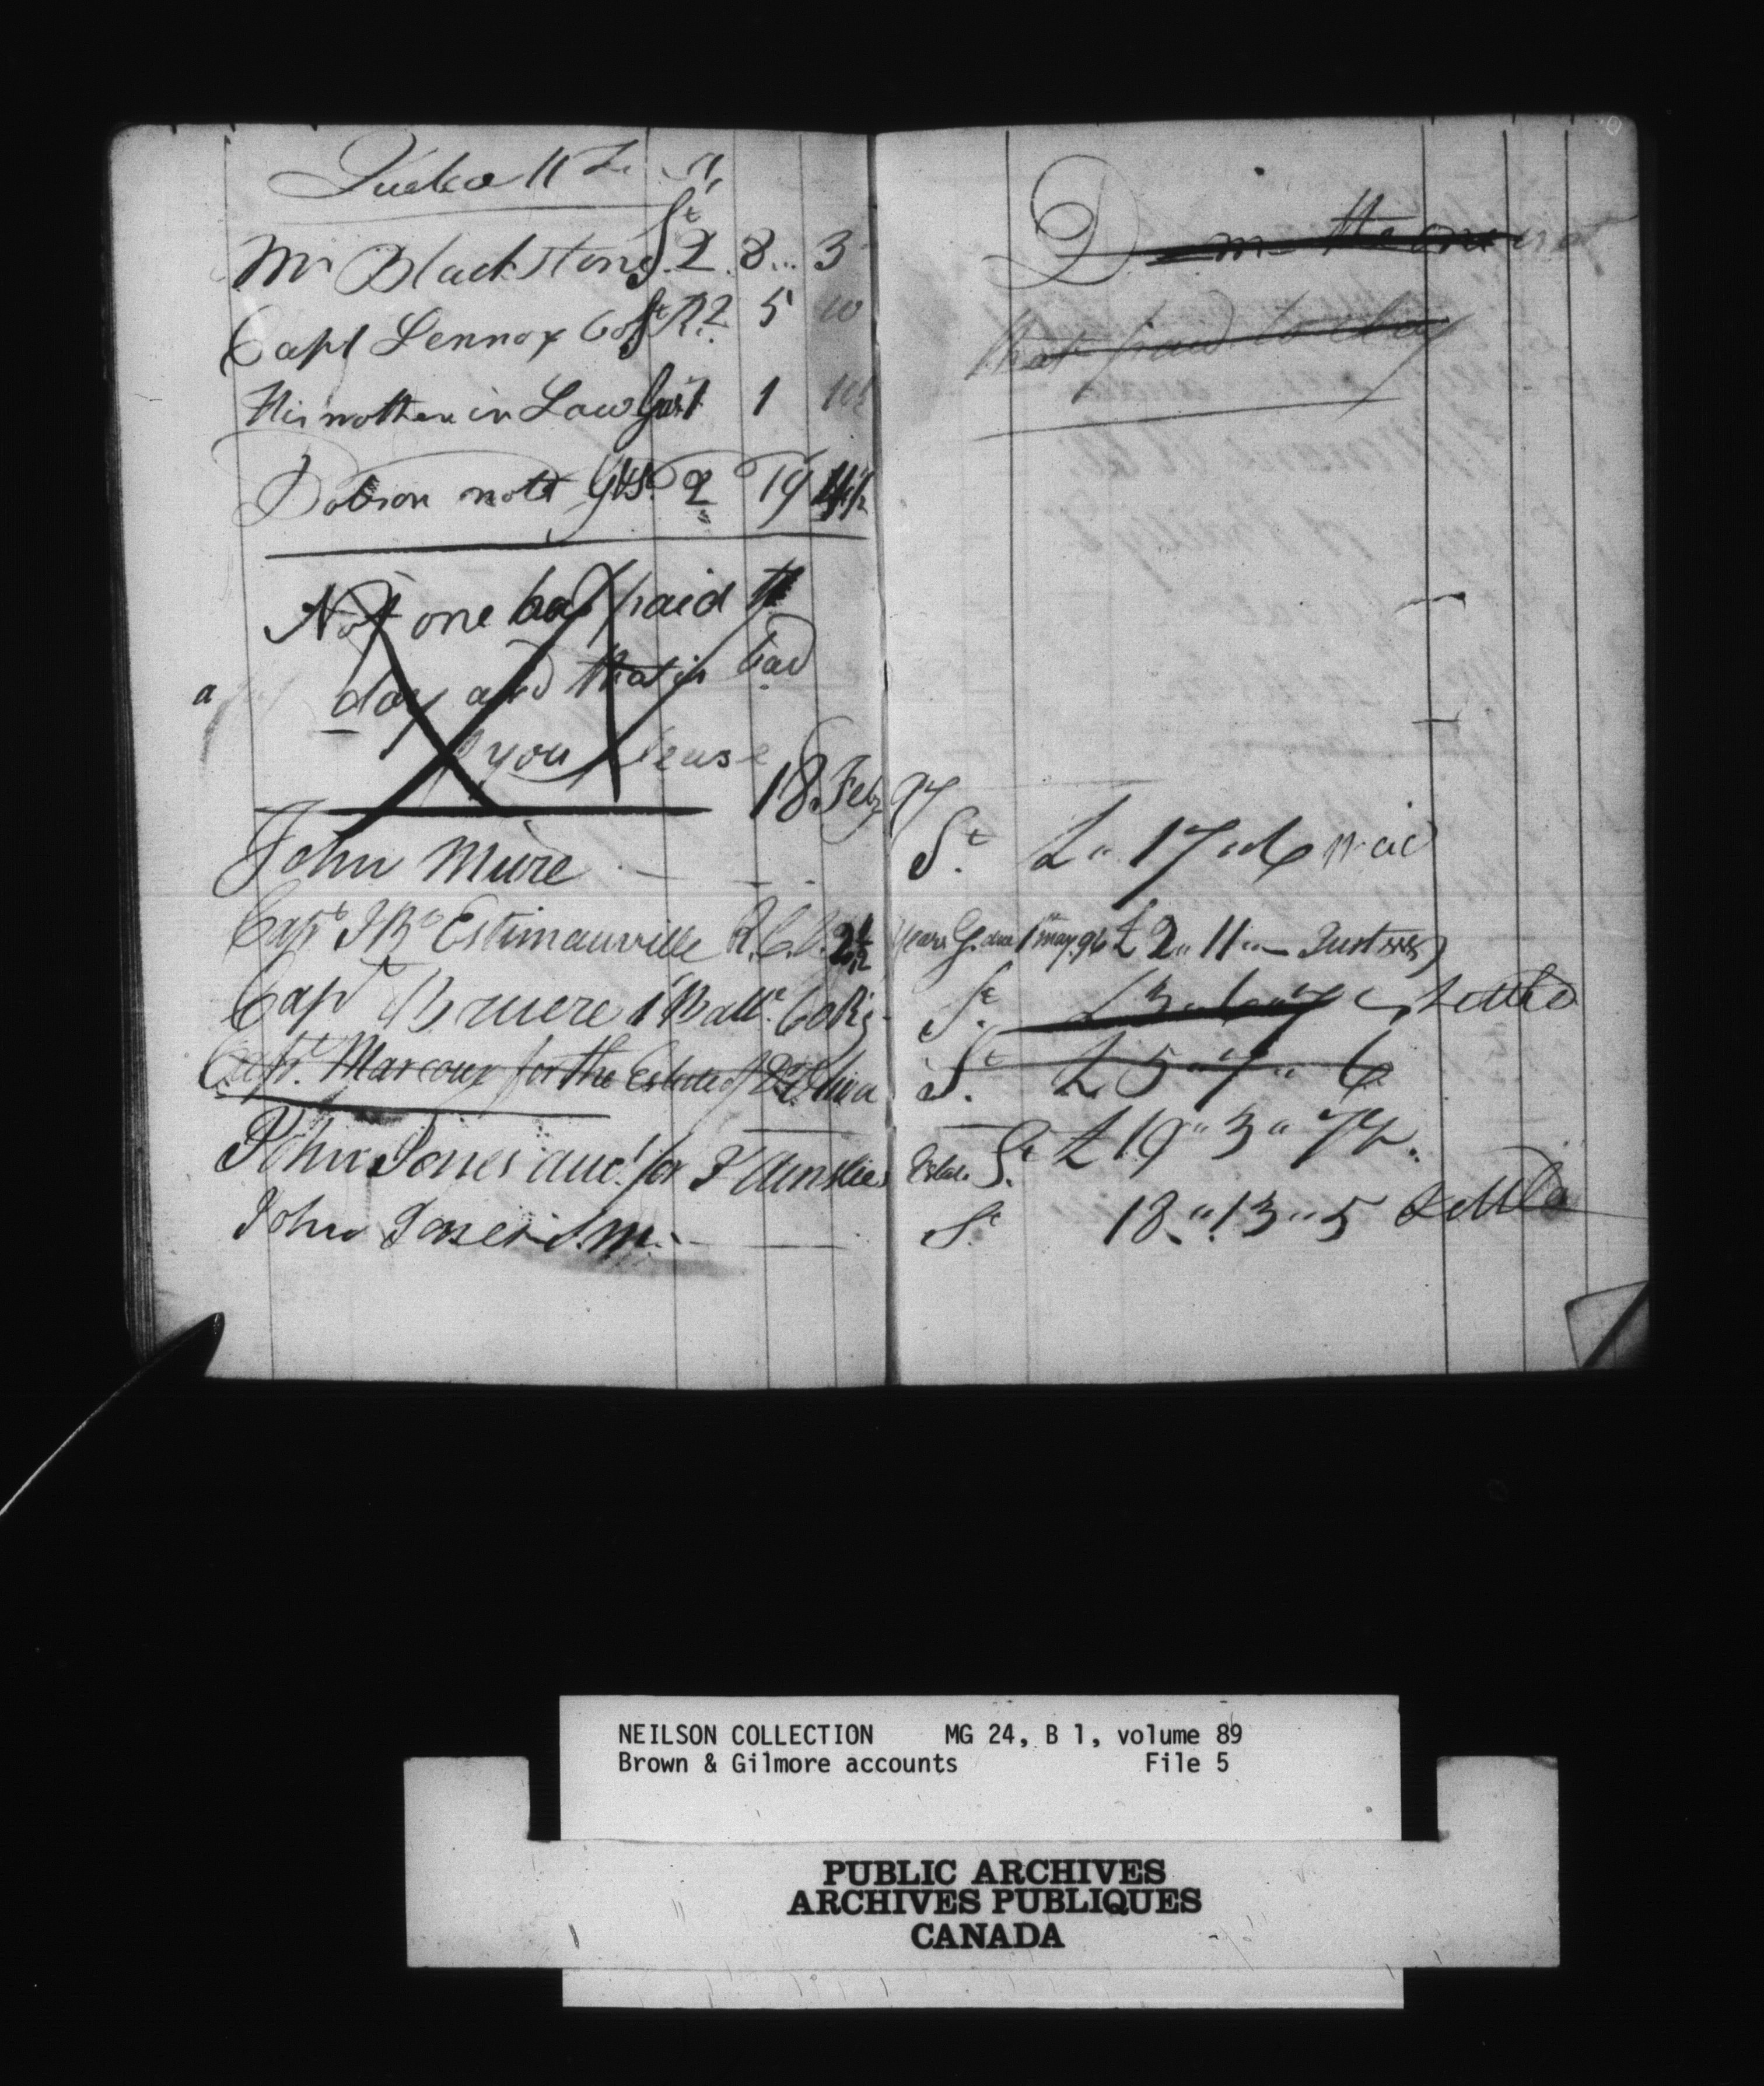 Mr Blackstone St 2 8 3
Capt Lennox 60 St R. 2 5 10
His mother in Law Gaz. 1 1
Dobson note Gas. 2 19
Not one has paid to
day and that is bad
if you please
18. Feby 97
John Mure St £" 17" 6 paid
Capt. J Bt Estimauville R.C.V. 2½ years G. due 1 may 96 £2" 11"
Capt Bruere 1 Batt. 60 Rg. St. £3" 6" 7 settled
Capt. Marcoux for the Estate of St. £5" 7" 6
John Jones auct. for T Ainslies Estate St. £19" 3" 7½.
John Jones S.M. St 18" 13" 5 Settled
that paid to day
NEILSON COLLECTION MG 24, B 1, volume 89
Brown & Gilmore accounts File 5
PUBLIC ARCHIVES
ARCHIVES PUBLIQUES
CANADA